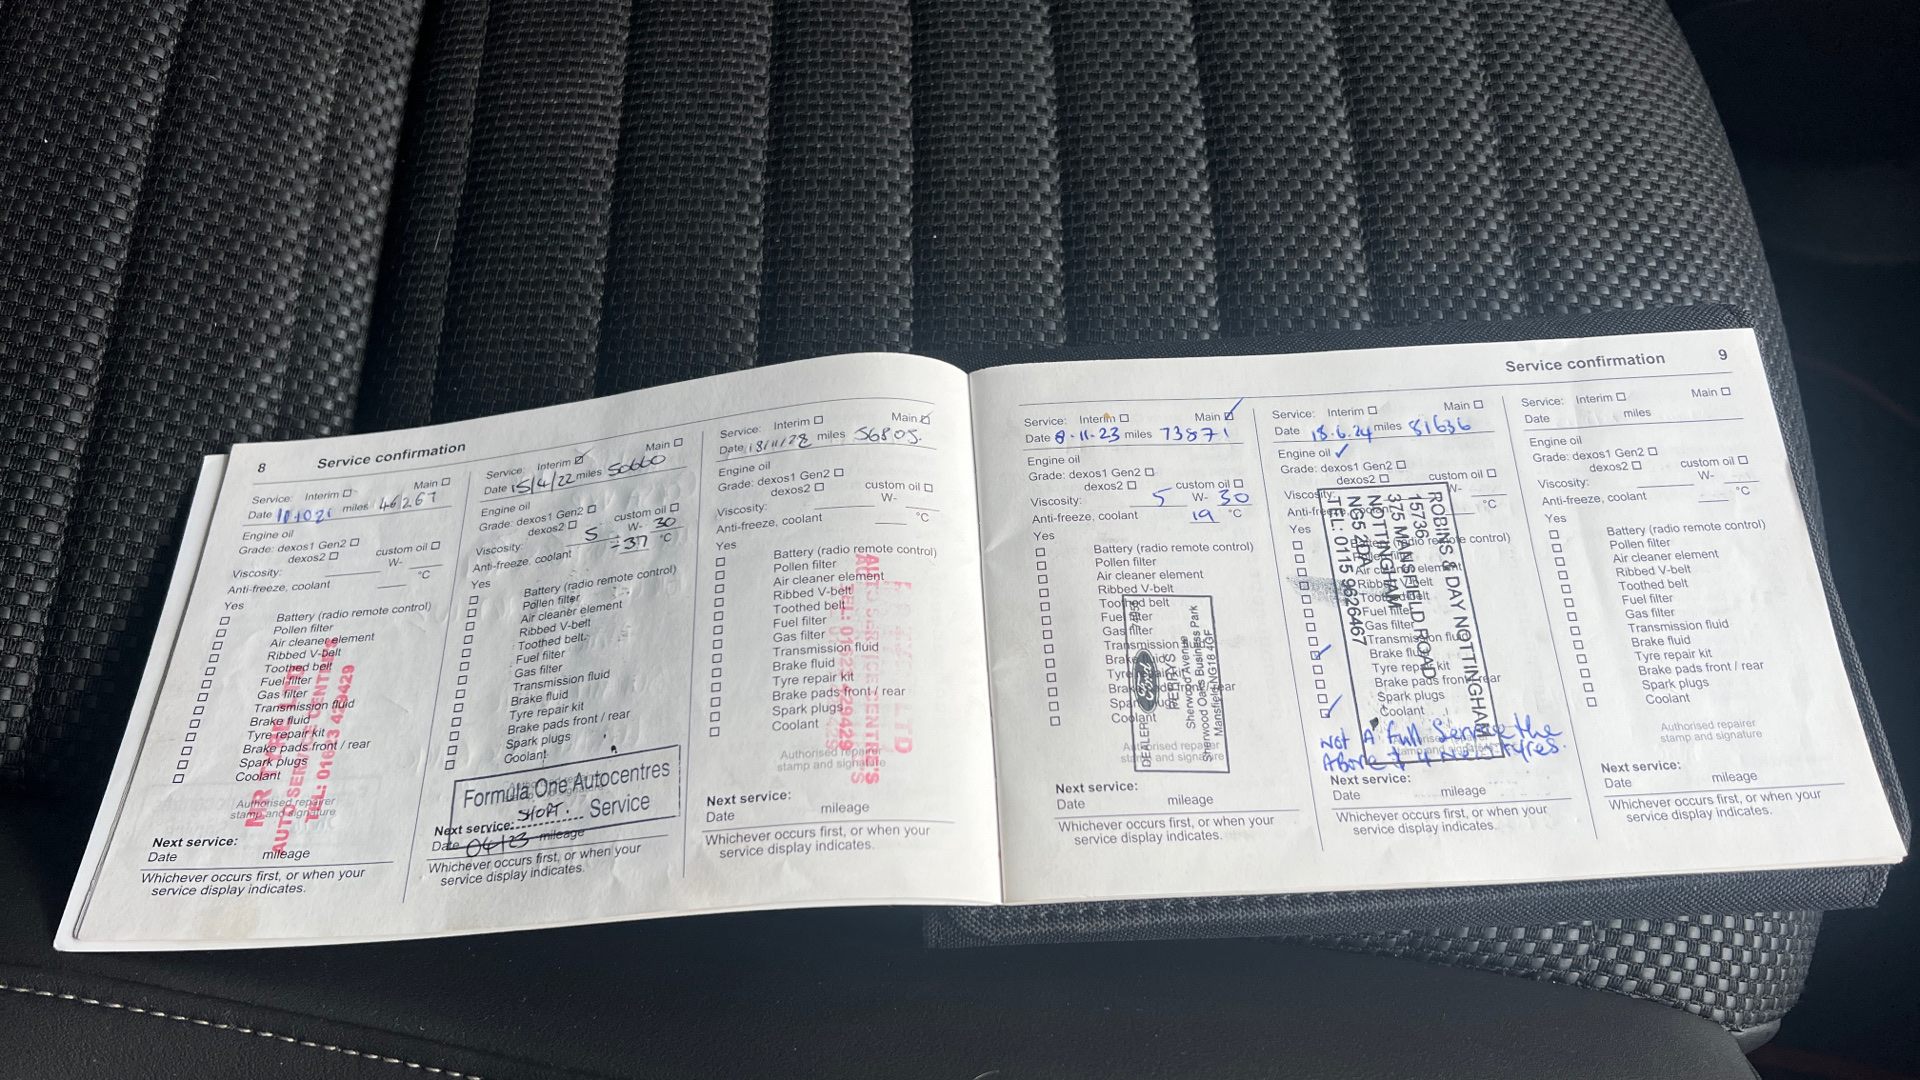 8 Service confirmation
Service: Interim Main
Date miles 46267
Engine oil
Grade: dexos1 Gen2
custom oil
Viscosity: W-
Anti-freeze, coolant °C
Yes
Battery (radio remote control)
Pollen filter
Air cleaner element
Ribbed V-belt
Toothed belt
Fuel filter
Gas filter
Transmission fluid
Brake fluid
Tyre repair kit
Brake pads front / rear
Spark plugs
Coolant
Authorised repairer
stamp and signature
MR
AUTO SERVICE CENTRES
TEL: 01623 429429
Next service:
Date mileage
Whichever occurs first, or when your
service display indicates.
Service: Interim Main
Date 15/4/22 miles 50660
Engine oil
Grade: dexos1 Gen2
dexos2 custom oil
Viscosity: 5 W- 30
Anti-freeze, coolant -37 °C
Yes
Battery (radio remote control)
Pollen filter
Air cleaner element
Ribbed V-belt
Toothed belt
Fuel filter
Gas filter
Transmission fluid
Brake fluid
Tyre repair kit
Brake pads front / rear
Spark plugs
Coolant
Formula One Autocentres
SHORT. Service
Next service:
Date 04/23 mileage
Whichever occurs first, or when your
service display indicates.
Service: Interim Main
Date 18/11/22 miles 56805.
Engine oil
Grade: dexos1 Gen2
dexos2 custom oil
Viscosity: W-
Anti-freeze, coolant °C
Yes
Battery (radio remote control)
Pollen filter
Air cleaner element
Ribbed V-belt
Toothed belt
Fuel filter
Gas filter
Transmission fluid
Brake fluid
Tyre repair kit
Brake pads front / rear
Spark plugs
Coolant
Authorised repairer
stamp and signature
LTD
AUTO SERVICE CENTRES
TEL: 01623 429429
Next service:
Date mileage
Whichever occurs first, or when your
service display indicates.
Service confirmation 9
Service: Interim Main
Date 8-11-23 miles 73871
Engine oil
Grade: dexos1 Gen2
dexos2 custom oil
Viscosity: 5 W- 30
Anti-freeze, coolant 19 °C
Yes
Battery (radio remote control)
Pollen filter
Air cleaner element
Ribbed V-belt
Toothed belt
Fuel filter
Gas filter
Transmission fluid
Brake fluid
Tyre repair kit
Brake pads front / rear
Spark plugs
Coolant
Authorised repairer
stamp and signature
DEALER
Ford
PERRYS
Sherwood Avenue
Sherwood Oaks Business Park
Mansfield NG18 4GF
Next service:
Date mileage
Whichever occurs first, or when your
service display indicates.
Service: Interim Main
Date 18.6.24 miles 81636
Engine oil
Grade: dexos1 Gen2
dexos2 custom oil
Viscosity: W-
°C
Yes
Fuel filter
Gas filter
Transmission fluid
Brake fluid
Tyre repair kit
Brake pads front / rear
Spark plugs
Coolant
ROBINS & DAY NOTTINGHAM
15736
375 MANSFIELD ROAD
NOTTINGHAM
NG5 2DA
TEL: 0115 9626467
Not A Full Service the
Above + 4 New Tyres.
Next service:
Date mileage
Whichever occurs first, or when your
service display indicates.
Service: Interim Main
Date miles
Engine oil
Grade: dexos1 Gen2
dexos2 custom oil
Viscosity: W-
Anti-freeze, coolant °C
Yes
Battery (radio remote control)
Pollen filter
Air cleaner element
Ribbed V-belt
Toothed belt
Fuel filter
Gas filter
Transmission fluid
Brake fluid
Tyre repair kit
Brake pads front / rear
Spark plugs
Coolant
Authorised repairer
stamp and signature
Next service:
Date mileage
Whichever occurs first, or when your
service display indicates.